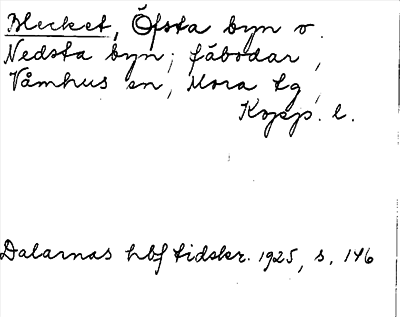 Blecket, Öfsta byn o.
Nedsta byn; fäbodar,
Våmhus sn, Mora tg,
Kopp. l.
Dalarnas hbf tidskr. 1925, s. 146